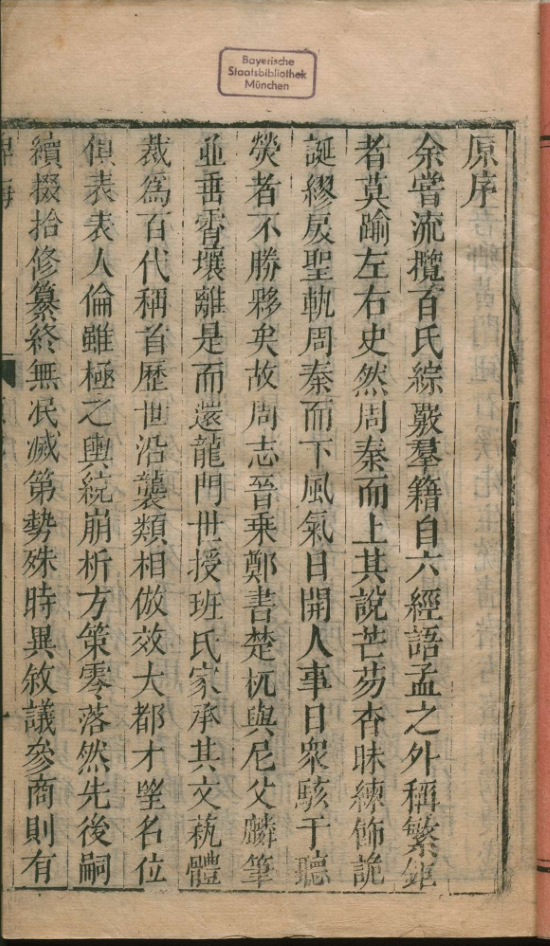 Bayerische
Staatsbibliothek
München
原序
余嘗流攬百氏綜覈羣籍自六經語孟之外稱繁鉅
者莫踰左右史然周秦而上其說芒芴杳昧練飾詭
誕繆戾聖軌周秦而下風氣日開人事日衆駭于聽
熒者不勝夥矣故周志晉乗鄭書楚杌與尼父麟筆
並垂霄壤離是而還龍門世授班氏家承其文蓺體
裁爲百代稱首歷世沿襲類相倣效大都才朢名位
俱表表人倫雖極之輿統崩析方策零落然先後嗣
續掇拾修纂終無泯滅第勢殊時異敘議參商則有